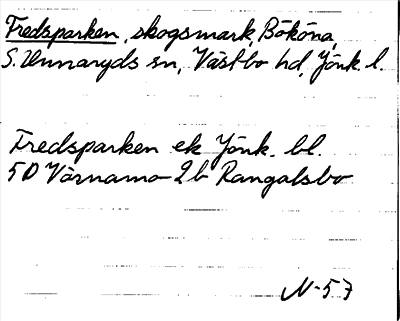 Fredsparken, skogsmark, Bököna,
S. Unnaryds sn, Västbo hd, Jönk. l.
Fredsparken ek Jönk. bl.
5D Värnamo 2b Rangalsbo
N-57